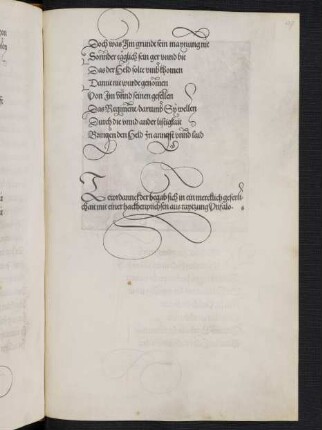 Doch was Im grunde sein maynung nit
Sonnder täglich sein ger vnnd bit
Das der Held solte vmbkhomen
Damit nit wurde genomen
Von Im vnnd seinen gesellen
Das Regiment darumb Sy wellen
Durch die vnnd ander listigkait
Bringen den Held In anngst vnnd laid
Tewrdannck der begab sich in ein mercklich geferli-
chait mit einer hackhenpüchsen aus raytzung Vnfalo·